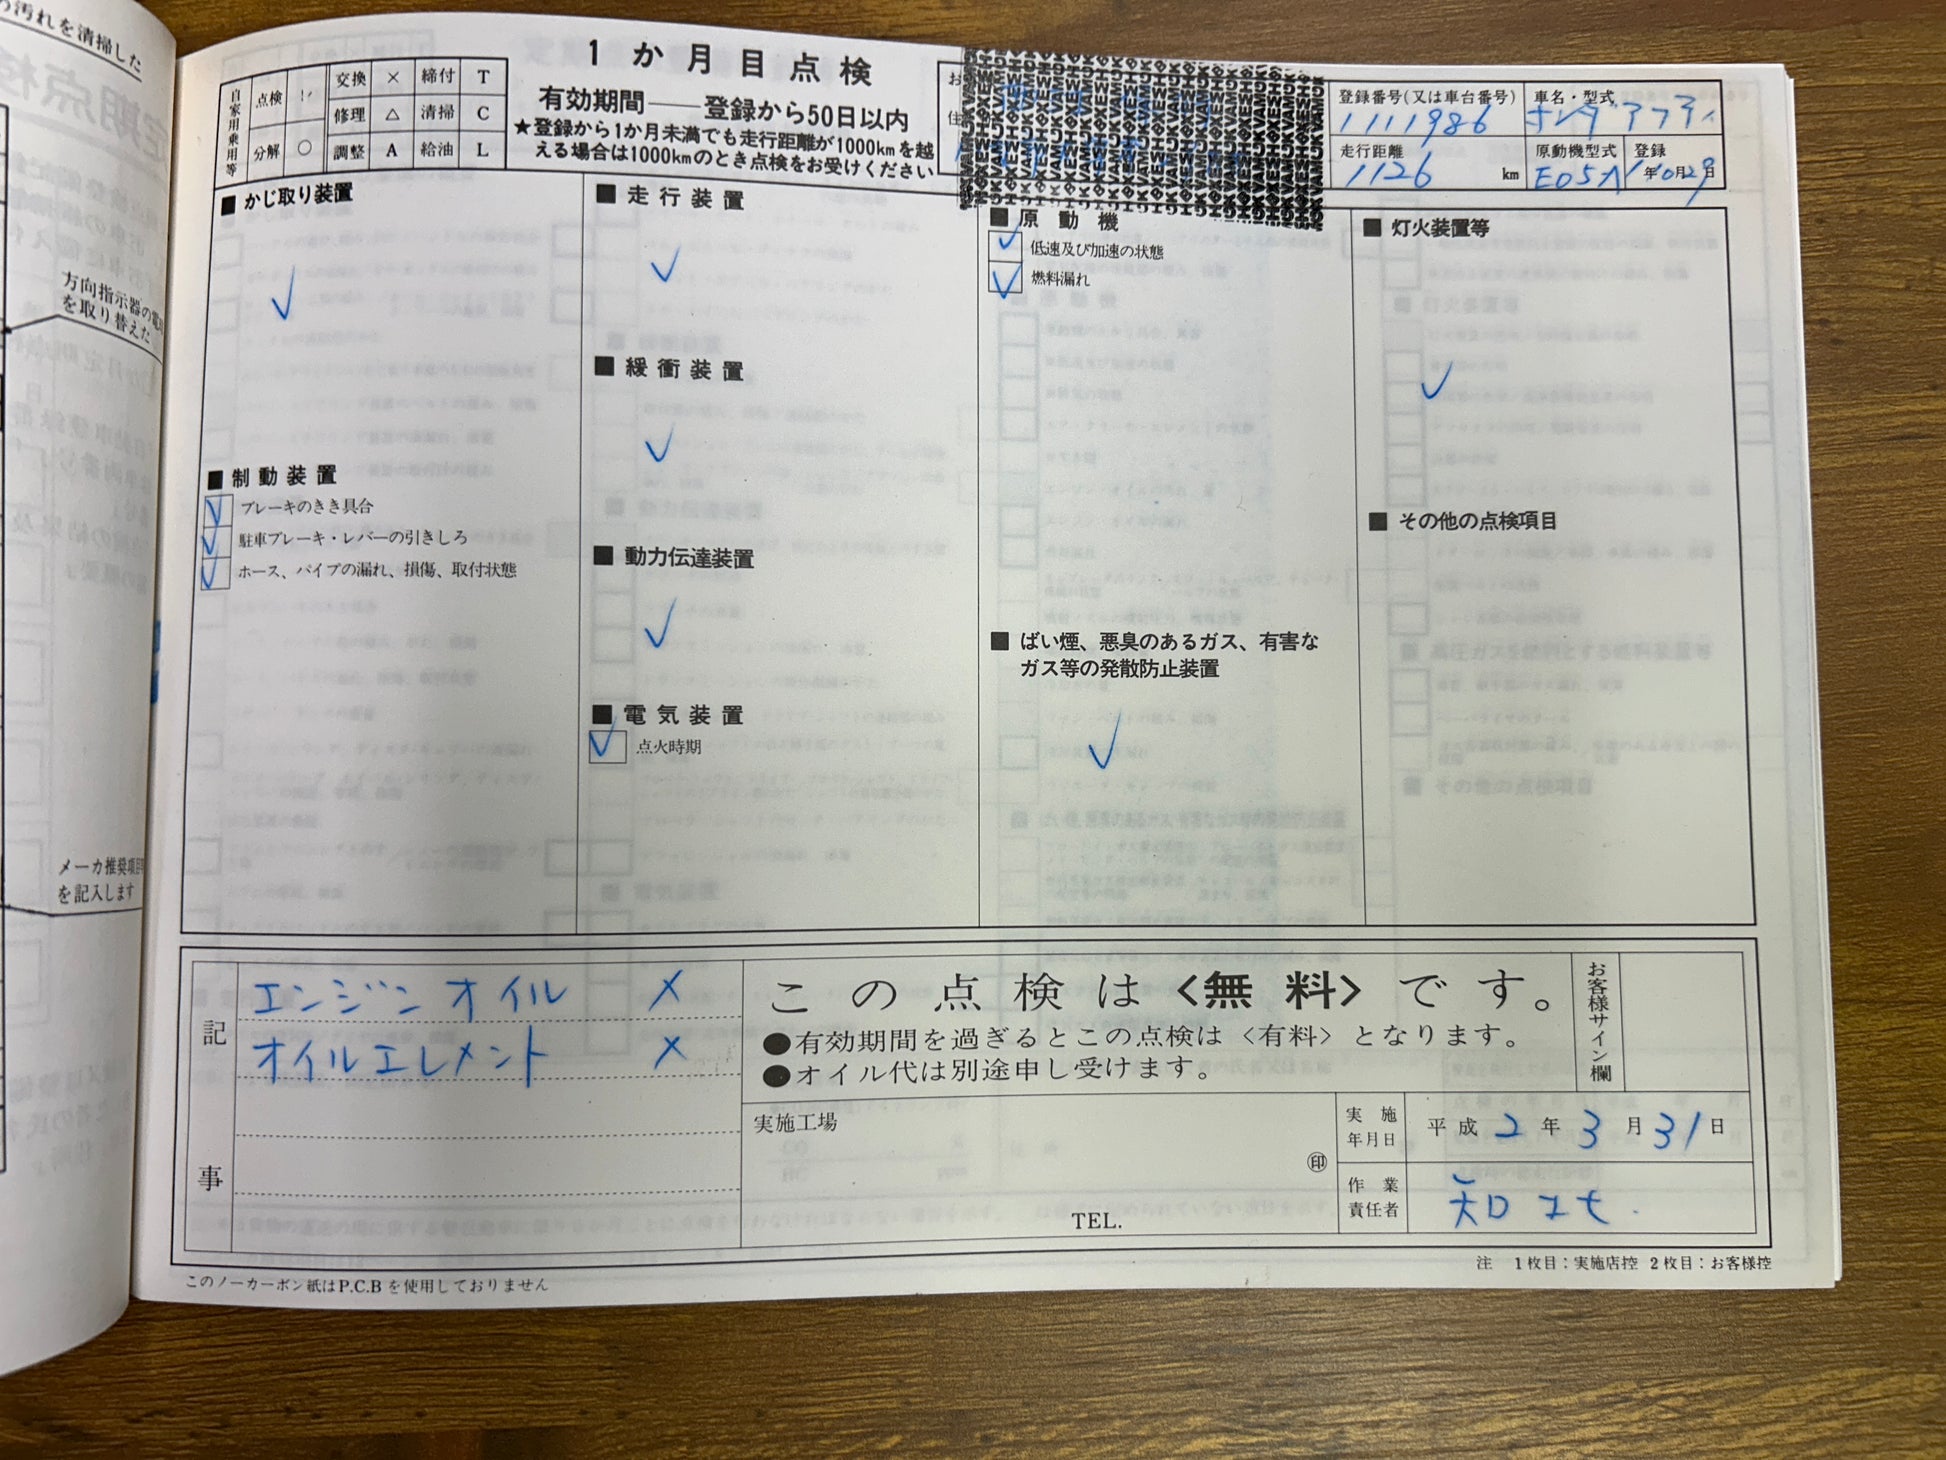 の汚れを清掃した
方向指示器の電球
を取り替えた
メーカ推奨項目
を記入します
自家用乗用等
点検 レ 交換 × 締付 T
修理 △ 清掃 C
分解 ○ 調整 A 給油 L
1か月目点検
有効期間──登録から50日以内
★登録から1か月未満でも走行距離が1000kmを越
える場合は1000kmのとき点検をお受けください
登録番号(又は車台番号)
1111986
車名・型式
ホンダ アコード
走行距離
1126 km
原動機型式
E05A
登録
年10月29日
■ かじ取り装置
✓
■ 制動装置
✓ ブレーキのきき具合
✓ 駐車ブレーキ・レバーの引きしろ
✓ ホース、パイプの漏れ、損傷、取付状態
■ 走行装置
✓
■ 緩衝装置
✓
■ 動力伝達装置
✓
■ 電気装置
✓ 点火時期
■ 原動機
✓ 低速及び加速の状態
✓ 燃料漏れ
■ ばい煙、悪臭のあるガス、有害な
ガス等の発散防止装置
✓
■ 灯火装置等
✓
■ その他の点検項目
記事
エンジンオイル ×
オイルエレメント ×
この点検は<無料>です。
●有効期間を過ぎるとこの点検は〈有料〉となります。
●オイル代は別途申し受けます。
お客様サイン欄
実施工場
㊞
TEL.
実施
年月日
平成2年3月31日
作業
責任者
このノーカーボン紙はP.C.Bを使用しておりません
注 1枚目:実施店控 2枚目:お客様控